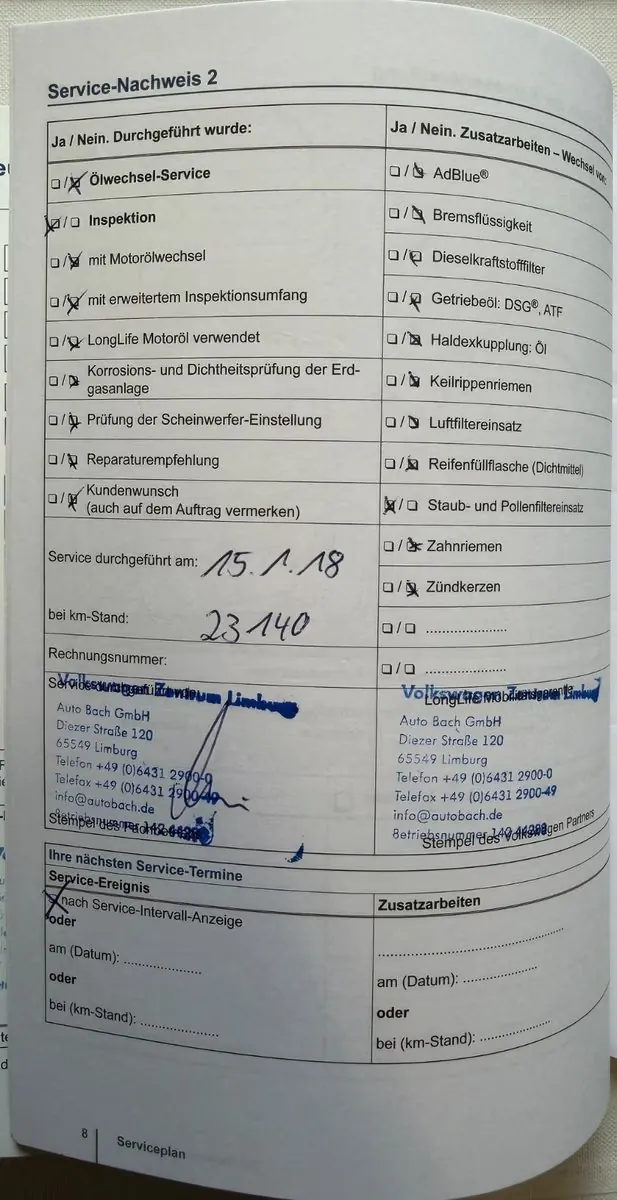 Service-Nachweis 2
Ja / Nein. Durchgeführt wurde:
☐/☒ Ölwechsel-Service
☒/☐ Inspektion
☐/☒ mit Motorölwechsel
☐/☒ mit erweitertem Inspektionsumfang
☐/☒ LongLife Motoröl verwendet
☐/☒ Korrosions- und Dichtheitsprüfung der Erd-
gasanlage
☐/☒ Prüfung der Scheinwerfer-Einstellung
☐/☒ Reparaturempfehlung
☐/☒ Kundenwunsch
(auch auf dem Auftrag vermerken)
Service durchgeführt am: 15.1.18
bei km-Stand: 23140
Rechnungsnummer:
Volkswagen Zentrum Limburg
Auto Bach GmbH
Diezer Straße 120
65549 Limburg
Telefon +49 (0)6431 2900-0
Telefax +49 (0)6431 2900-49
info@autobach.de
Betriebsnummer
Stempel des
Ja / Nein. Zusatzarbeiten – Wechsel von:
☐/☒ AdBlue®
☐/☒ Bremsflüssigkeit
☐/☒ Dieselkraftstofffilter
☐/☒ Getriebeöl: DSG®, ATF
☐/☒ Haldexkupplung: Öl
☐/☒ Keilrippenriemen
☐/☒ Luftfiltereinsatz
☐/☒ Reifenfüllflasche (Dichtmittel)
☒/☐ Staub- und Pollenfiltereinsatz
☐/☒ Zahnriemen
☐/☒ Zündkerzen
☐/☐ ....................
☐/☐ ....................
Volkswagen Zentrum Limburg
LongLife Mobilitätsgarantie
Auto Bach GmbH
Diezer Straße 120
65549 Limburg
Telefon +49 (0)6431 2900-0
Telefax +49 (0)6431 2900-49
info@autobach.de
Betriebsnummer
Stempel des Volkswagen Partners
Ihre nächsten Service-Termine
Service-Ereignis
☒ nach Service-Intervall-Anzeige
oder
am (Datum): ....................
oder
bei (km-Stand): ....................
Zusatzarbeiten
....................
am (Datum): ....................
oder
bei (km-Stand): ....................
8 Serviceplan